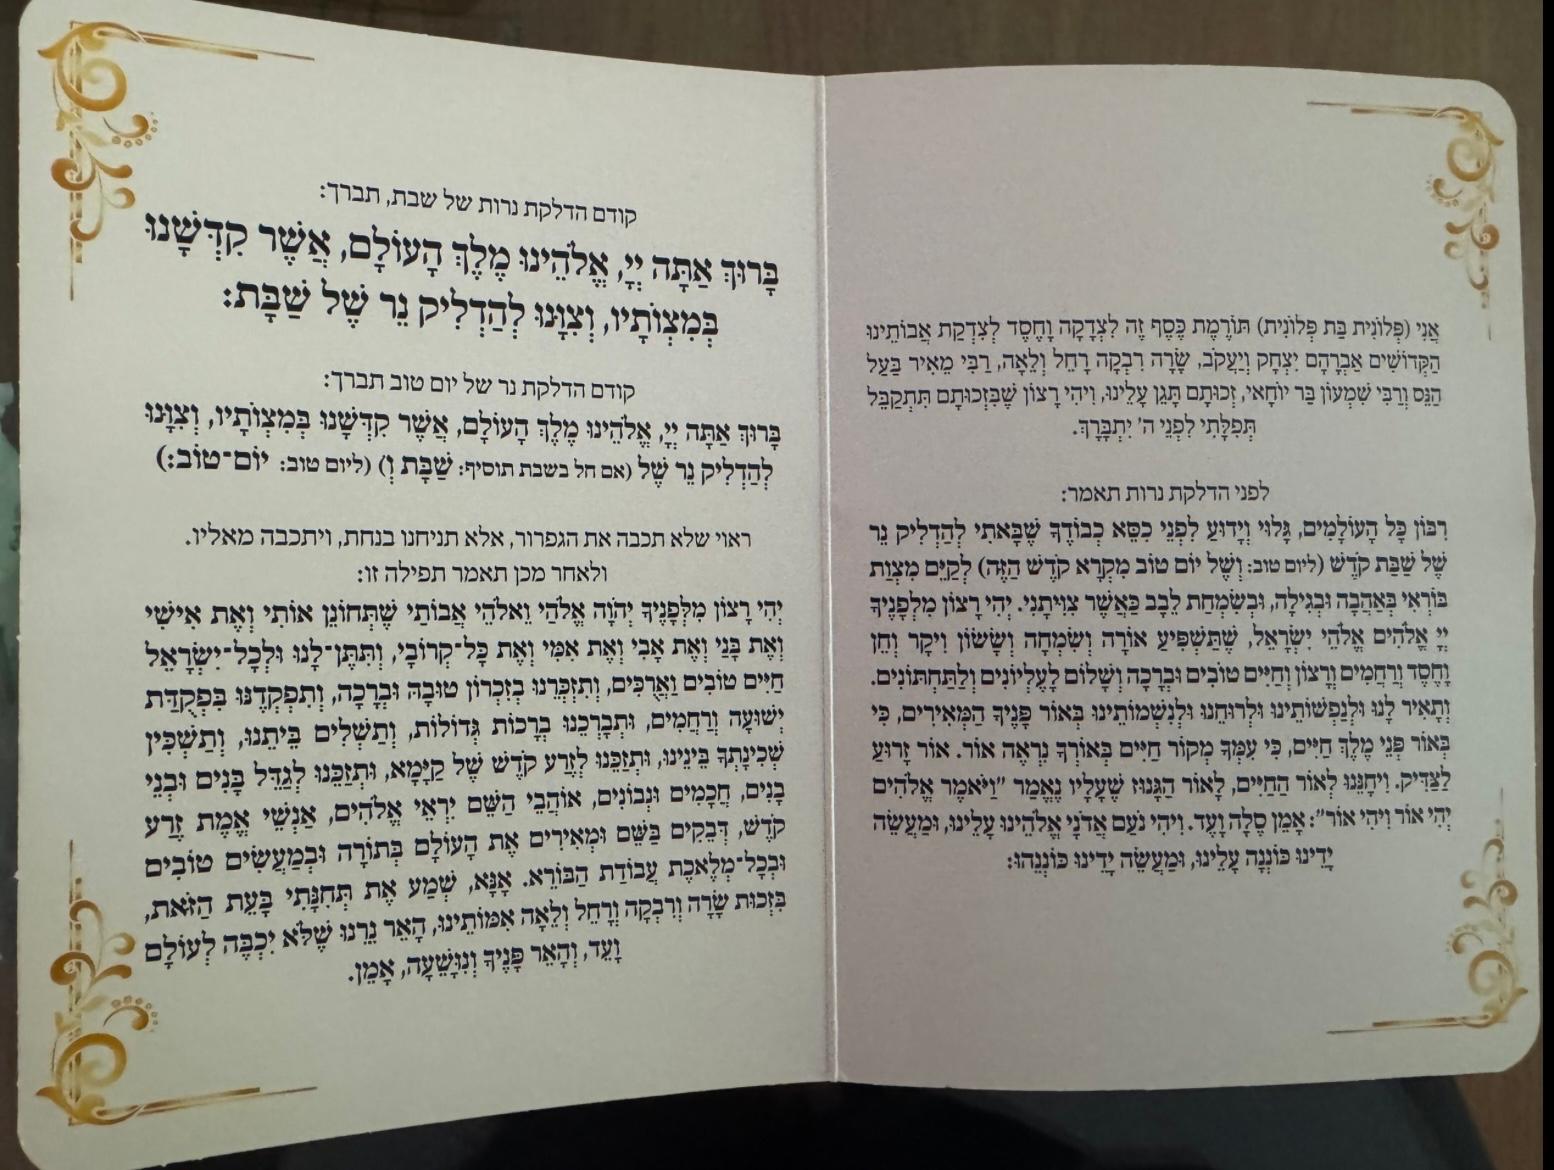 אֲנִי (פְּלוֹנִית בַּת פְּלוֹנִית) תּוֹרֶמֶת כֶּסֶף זֶה לִצְדָקָה וָחֶסֶד לְצִדְקַת אֲבוֹתֵינוּ
הַקְּדוֹשִׁים אַבְרָהָם יִצְחָק וְיַעֲקֹב, שָׂרָה רִבְקָה רָחֵל וְלֵאָה, רַבִּי מֵאִיר בַּעַל
הַנֵּס וְרַבִּי שִׁמְעוֹן בַּר יוֹחָאי, זְכוּתָם תָּגֵן עָלֵינוּ, וִיהִי רָצוֹן שֶׁבִּזְכוּתָם תִּתְקַבֵּל
תְּפִלָּתִי לִפְנֵי ה' יִתְבָּרָךְ.
לפני הדלקת נרות תאמר:
רִבּוֹן כָּל הָעוֹלָמִים, גָּלוּי וְיָדוּעַ לִפְנֵי כִסֵּא כְבוֹדֶךָ שֶׁבָּאתִי לְהַדְלִיק נֵר
שֶׁל שַׁבַּת קֹדֶשׁ (ליום טוב: וְשֶׁל יוֹם טוֹב מִקְרָא קֹדֶשׁ הַזֶּה) לְקַיֵּם מִצְוַת
בּוֹרְאִי בְּאַהֲבָה וּבְגִילָה, וּבְשִׂמְחַת לֵבָב כַּאֲשֶׁר צִוִּיתָנִי. יְהִי רָצוֹן מִלְּפָנֶיךָ
יְיָ אֱלֹהִים אֱלֹהֵי יִשְׂרָאֵל, שֶׁתַּשְׁפִּיעַ אוֹרָה וְשִׂמְחָה וְשָׂשׂוֹן וִיקָר וְחֵן
וָחֶסֶד וְרַחֲמִים וְרָצוֹן וְחַיִּים טוֹבִים וּבְרָכָה וְשָׁלוֹם לָעֶלְיוֹנִים וְלַתַּחְתּוֹנִים.
וְתָאִיר לָנוּ וּלְנַפְשׁוֹתֵינוּ וּלְרוּחֵנוּ וּלְנִשְׁמוֹתֵינוּ בְּאוֹר פָּנֶיךָ הַמְּאִירִים, כִּי
בְּאוֹר פְּנֵי מֶלֶךְ חַיִּים, כִּי עִמְּךָ מְקוֹר חַיִּים בְּאוֹרְךָ נִרְאֶה אוֹר. אוֹר זָרוּעַ
לַצַּדִּיק. וִיחָנֵּנוּ לְאוֹר הַחַיִּים, לָאוֹר הַגָּנוּז שֶׁעָלָיו נֶאֱמַר "וַיֹּאמֶר אֱלֹהִים
יְהִי אוֹר וִיהִי אוֹר": אָמֵן סֶלָה וָעֶד. וִיהִי נֹעַם אֲדֹנָי אֱלֹהֵינוּ עָלֵינוּ, וּמַעֲשֵׂה
יָדֵינוּ כּוֹנְנָה עָלֵינוּ, וּמַעֲשֵׂה יָדֵינוּ כּוֹנְנֵהוּ:
קודם הדלקת נרות של שבת, תברך:
בָּרוּךְ אַתָּה יְיָ, אֱלֹהֵינוּ מֶלֶךְ הָעוֹלָם, אֲשֶׁר קִדְּשָׁנוּ
בְּמִצְוֹתָיו, וְצִוָּנוּ לְהַדְלִיק נֵר שֶׁל שַׁבָּת:
קודם הדלקת נר של יום טוב תברך:
בָּרוּךְ אַתָּה יְיָ, אֱלֹהֵינוּ מֶלֶךְ הָעוֹלָם, אֲשֶׁר קִדְּשָׁנוּ בְּמִצְוֹתָיו, וְצִוָּנוּ
לְהַדְלִיק נֵר שֶׁל (אם חל בשבת תוסיף: שַׁבָּת וְ) (ליום טוב: יוֹם־טוֹב:)
ראוי שלא תכבה את הגפרור, אלא תניחנו בנחת, ויתכבה מאליו.
ולאחר מכן תאמר תפילה זו:
יְהִי רָצוֹן מִלְּפָנֶיךָ יְהֹוָה אֱלֹהַי וֵאלֹהֵי אֲבוֹתַי שֶׁתְּחוֹנֵן אוֹתִי וְאֶת אִישִׁי
וְאֶת בָּנַי וְאֶת אָבִי וְאֶת אִמִּי וְאֶת כָּל־קְרוֹבַי, וְתִתֶּן־לָנוּ וּלְכָל־יִשְׂרָאֵל
חַיִּים טוֹבִים וַאֲרֻכִּים, וְתִזְכְּרֵנוּ בְּזִכְרוֹן טוֹבָה וּבְרָכָה, וְתִפְקְדֵנוּ בִּפְקֻדַּת
יְשׁוּעָה וְרַחֲמִים, וּתְבָרְכֵנוּ בְּרָכוֹת גְּדוֹלוֹת, וְתַשְׁלִים בֵּיתֵנוּ, וְתַשְׁכִּין
שְׁכִינָתְךָ בֵּינֵינוּ, וּתְזַכֵּנוּ לְזֶרַע קֹדֶשׁ שֶׁל קַיָּמָא, וּתְזַכֵּנוּ לְגַדֵּל בָּנִים וּבְנֵי
בָנִים, חֲכָמִים וּנְבוֹנִים, אוֹהֲבֵי הַשֵּׁם יִרְאֵי אֱלֹהִים, אַנְשֵׁי אֱמֶת זֶרַע
קֹדֶשׁ, דְּבֵקִים בַּשֵּׁם וּמְאִירִים אֶת הָעוֹלָם בְּתוֹרָה וּבְמַעֲשִׂים טוֹבִים
וּבְכָל־מְלֶאכֶת עֲבוֹדַת הַבּוֹרֵא. אָנָּא, שְׁמַע אֶת תְּחִנָּתִי בָּעֵת הַזֹּאת,
בִּזְכוּת שָׂרָה וְרִבְקָה וְרָחֵל וְלֵאָה אִמּוֹתֵינוּ, הָאֵר נֵרֵנוּ שֶׁלֹּא יִכְבֶּה לְעוֹלָם
וָעֶד, וְהָאֵר פָּנֶיךָ וְנִוָּשֵׁעָה, אָמֵן.